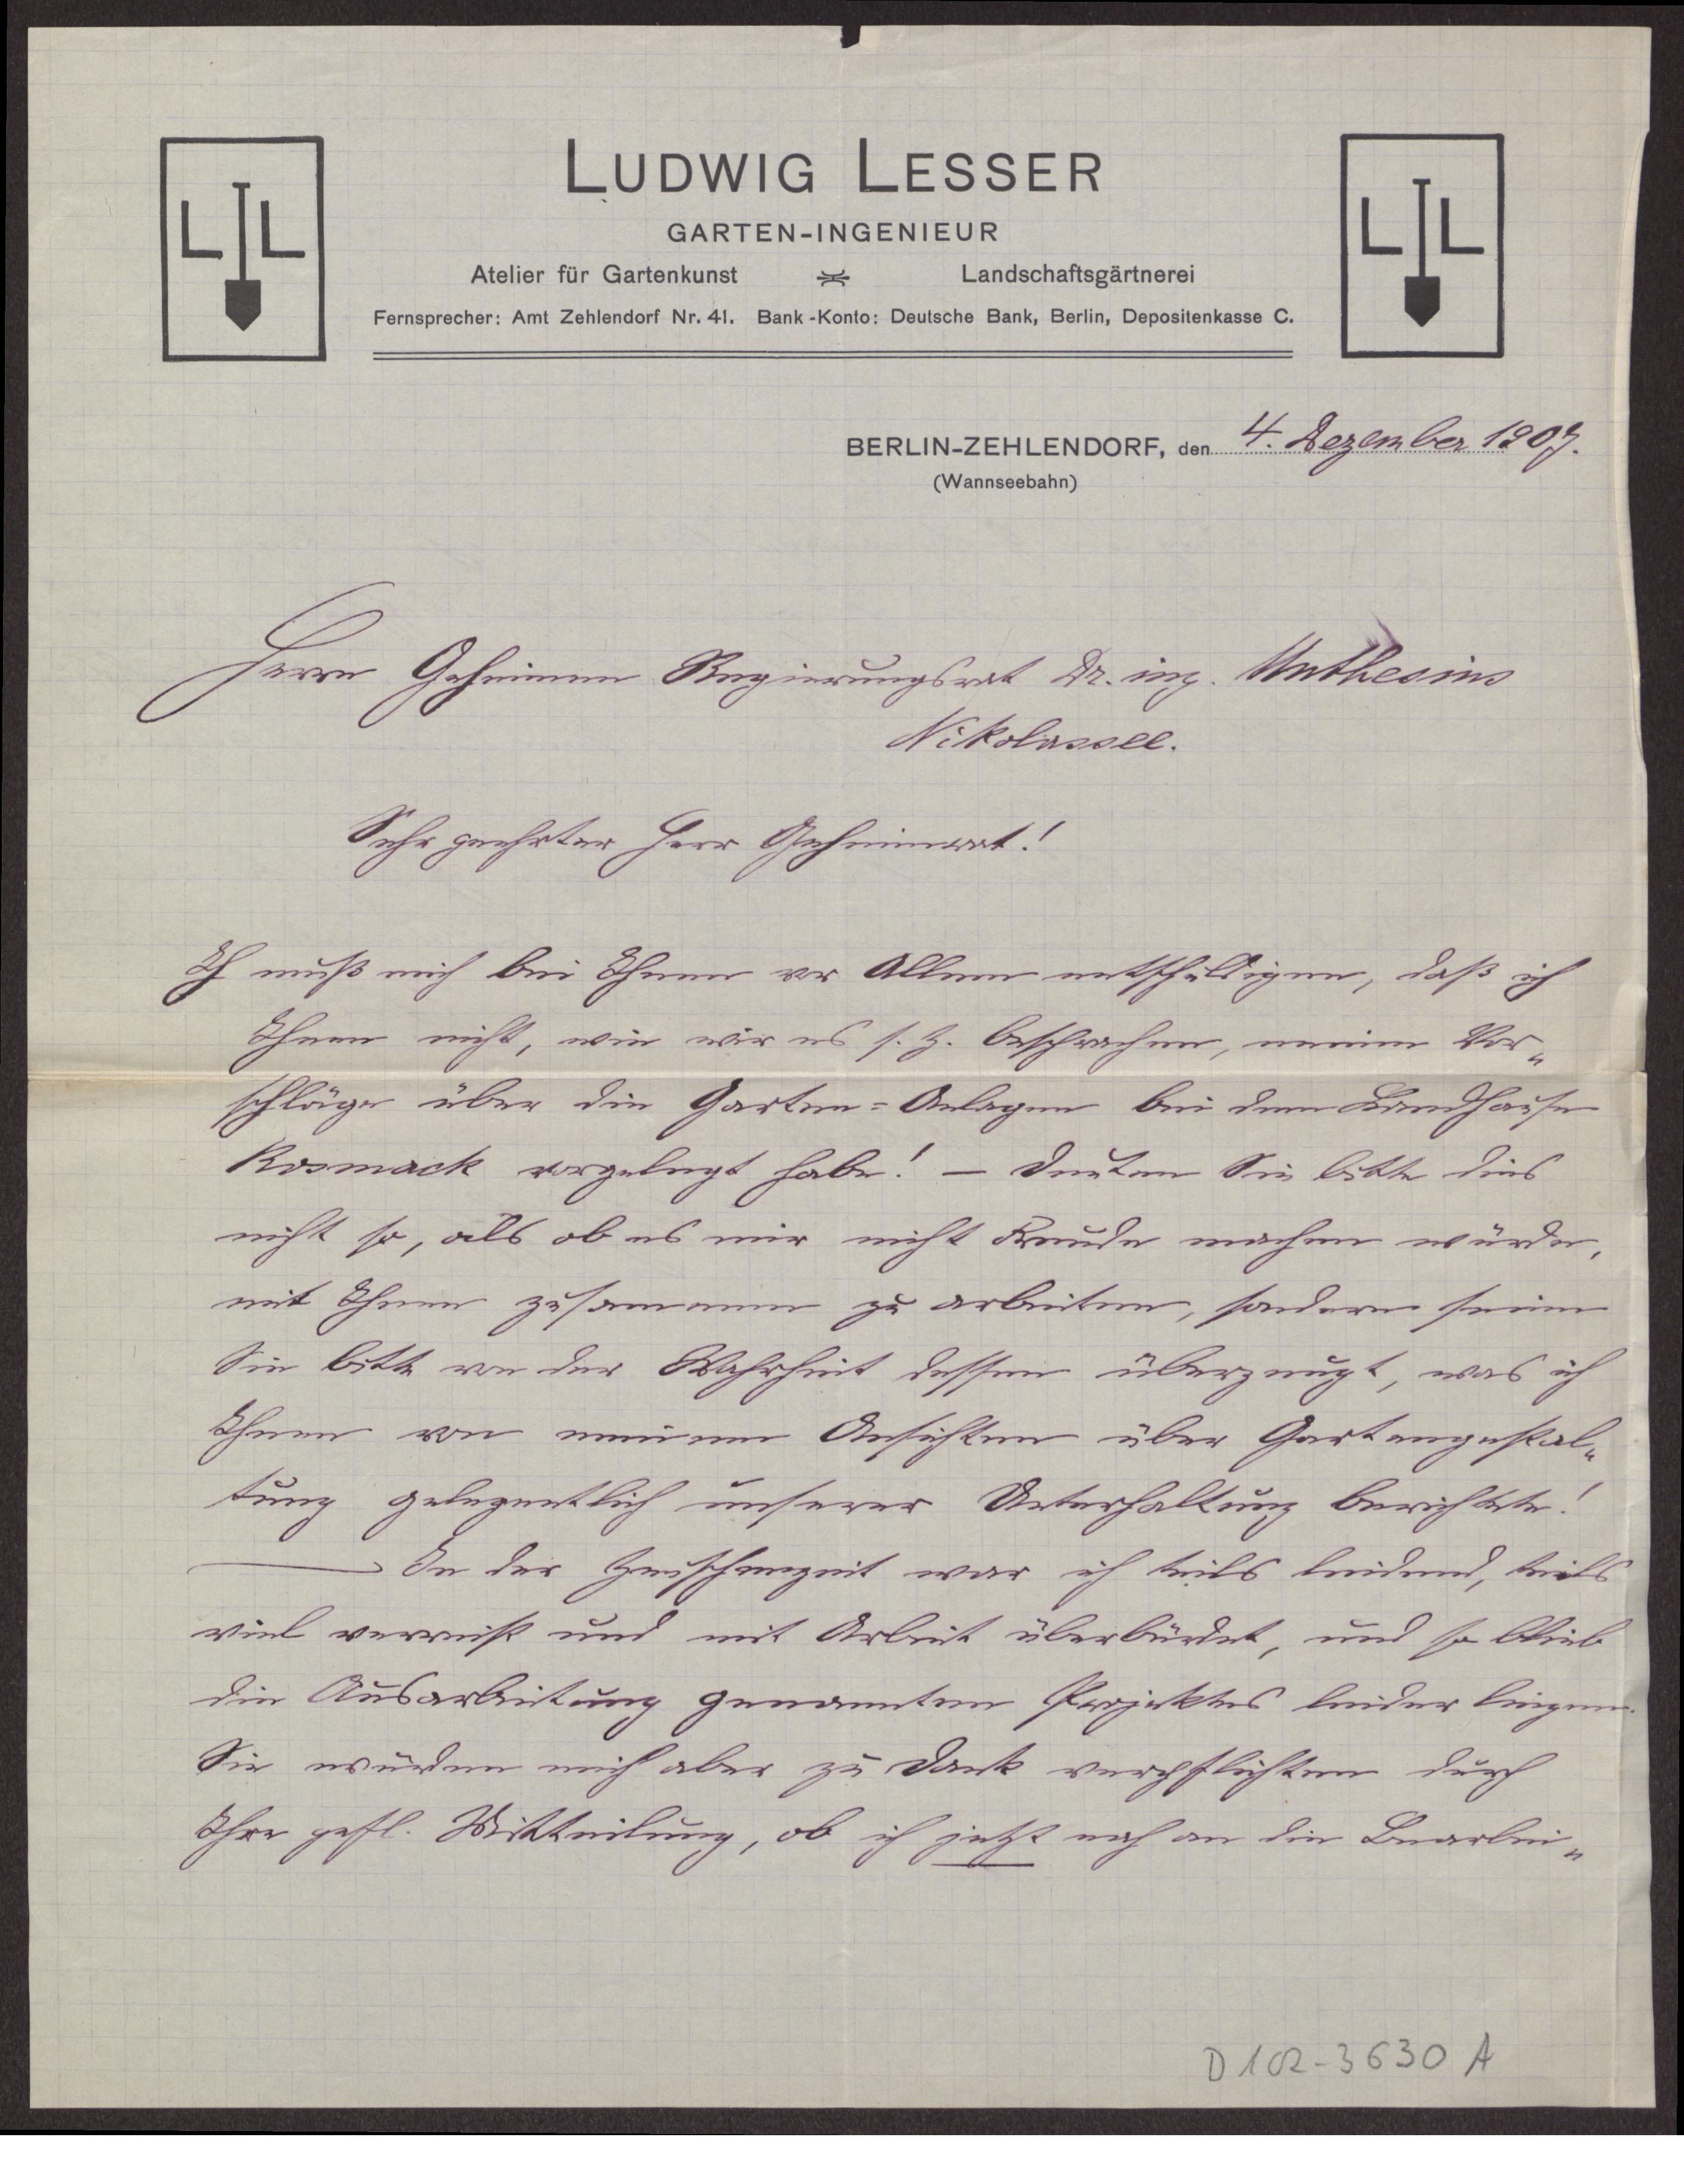 LUDWIG LESSER
GARTEN-INGENIEUR
Atelier für Gartenkunst Landschaftsgärtnerei
Fernsprecher: Amt Zehlendorf Nr. 41. Bank-Konto: Deutsche Bank, Berlin, Depositenkasse C.
L L
L L
BERLIN-ZEHLENDORF, den 4. Dezember 1907.
(Wannseebahn)
Herrn Geheimen Regierungsrat Dr. ing. Muthesius
Nikolassee.
Sehr geehrter Herr Geheimrat!
Ich muß mich bei Ihnen vor Allem entschuldigen, daß ich
Ihnen nicht, wie wir es s. Z. besprachen, meine Vor„
schläge über die Garten=Anlagen bei dem Landhause
Kosmack vorgelegt habe! — Deuten Sie bitte dies
nicht so, als ob es mir nicht Freude machen würde,
mit Ihnen zusammen zu arbeiten, sondern seien
Sie bitte von der Wahrheit dessen überzeugt, was ich
Ihnen von meinen Ansichten über Gartengestal„
tung gelegentlich unserer Unterhaltung berichtete!
— In der Zwischenzeit war ich teils leidend, teils
viel verreist und mit Arbeit überbürdet, und so blieb
die Ausarbeitung genannten Projektes leider liegen.
Sie würden mich aber zu Dank verpflichten durch
Ihre gefl. Mitteilung, ob ich jetzt noch an die Bearbei„
D 102-3630 A